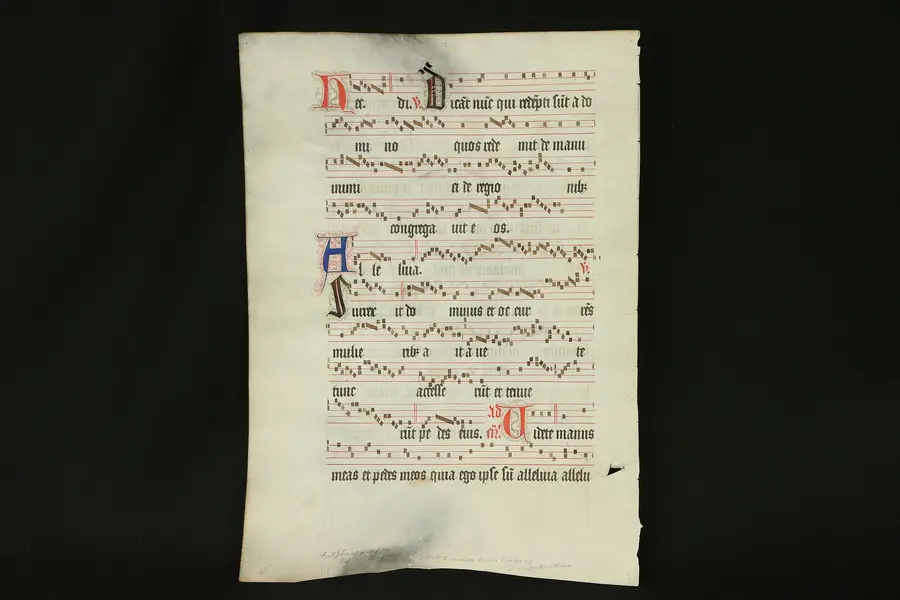 Hec. di. v. Dicāt nūc qui redēpti sūt a do
mi no quos rede mit de manu
inimi ci de regio nibꝫ
congrega uit e os.
Alle luia. v.
Surrex it do minus et oc cur rēs
mulie ribꝫ a it a ue te
tunc accesse rūt et tenue
rūt pe des eius. ad Videte manus
meas et pedes meos quia ego ipse sū alleluia allelu